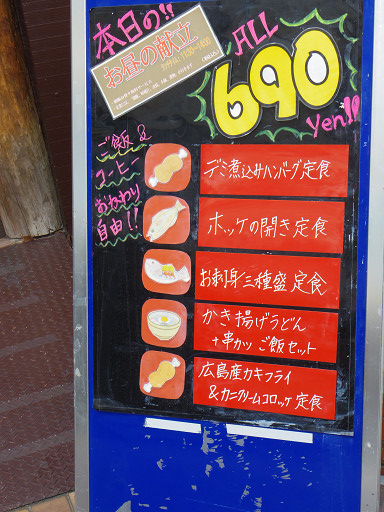 本日の!!
お昼の献立
ALL
690
Yen!!
ご飯&
コーヒー
おかわり
自由!!
デミ煮込みハンバーグ定食
ホッケの開き定食
お刺身三種盛定食
かき揚げうどん
+串カツ ご飯セット
広島産カキフライ
&カニクリームコロッケ定食